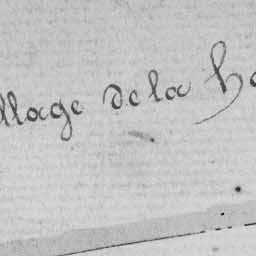 llage de la h